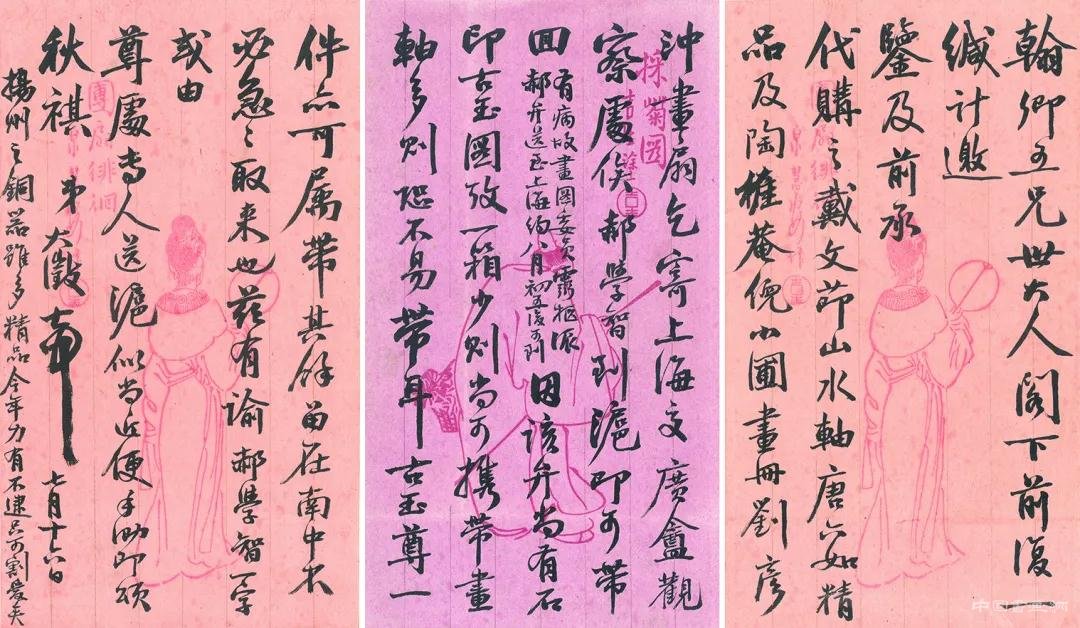 翰卿五兄世大人閣下前復
緘計邀
鑒及前承
代購之戴文節山水軸唐六如精
品及陶菴倪小圃畫冊劉彥
沖畫扇乞寄上海文廣盦觀
察處俟郝學智到滬即可帶
回
有病故畫圖委員柩派
郝弁送至上海約八月初五後可到
因該弁尚有石
印古玉圖攷一箱少則尚可攜帶畫
軸多則恐不易帶耳古玉尊一
件亦可属帶其餘留在南中不
必急々取来也茲有諭郝學智一字
或由
尊處專人送滬似尚近便手泐即頌
秋祺 弟大澂頓首 七月十六日
揚州之銅器雖多精品今年力有不逮只可割愛矣
採菊圖
團扇徘徊